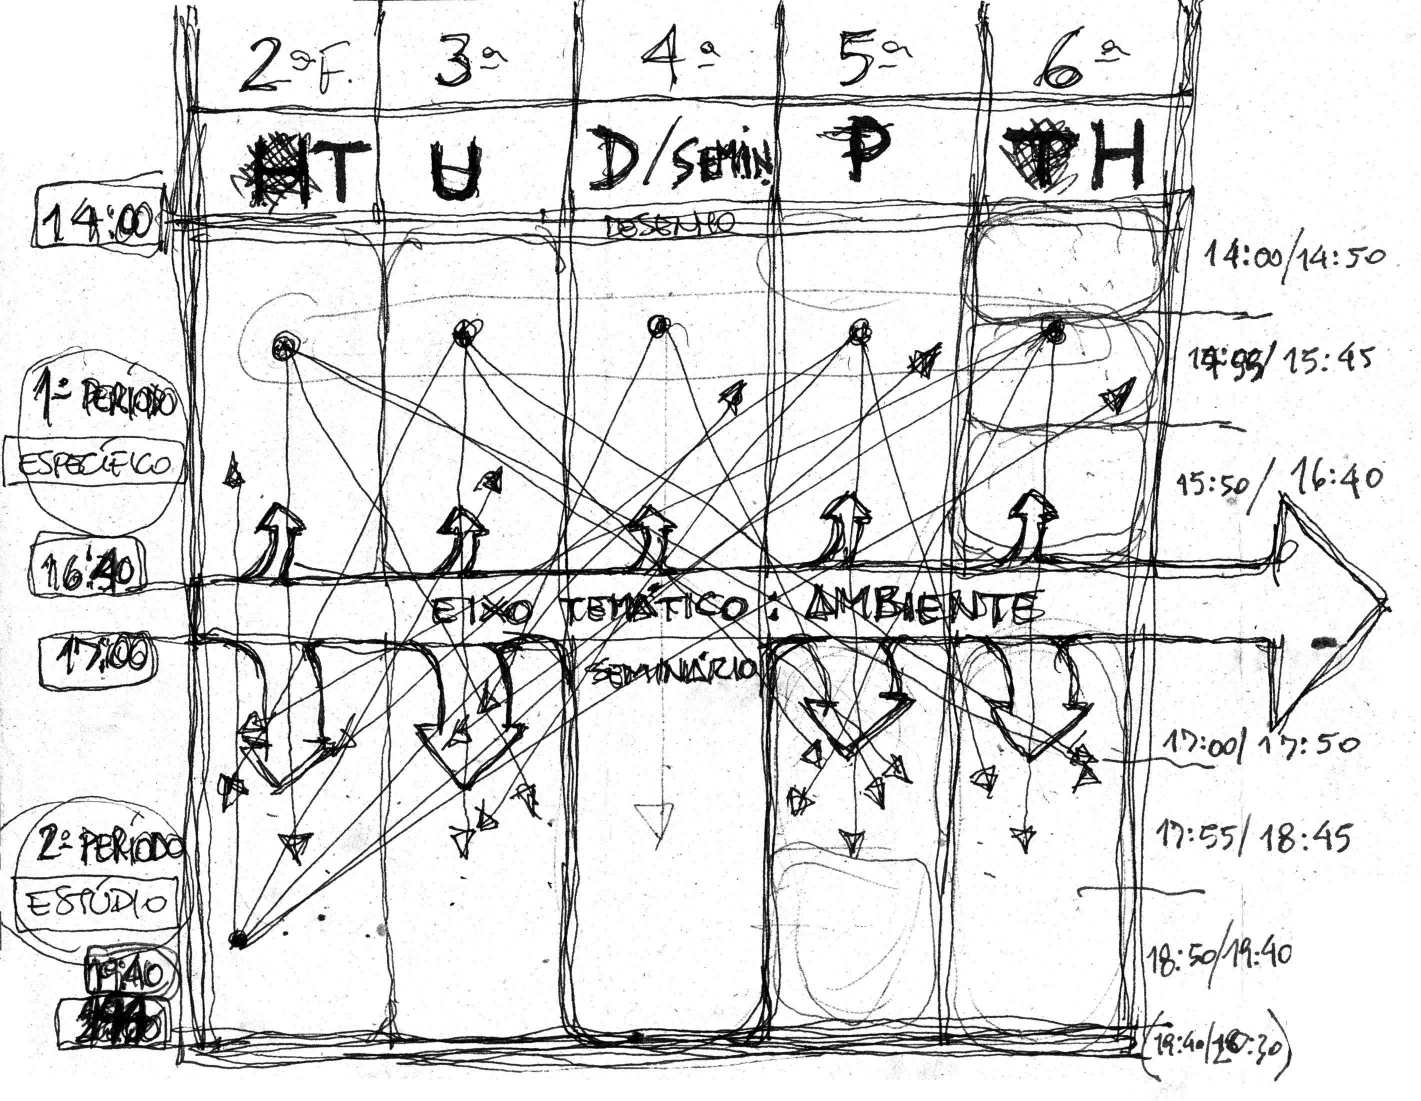 2ª F. 3ª 4ª 5ª 6ª
T U D/SEMIN. P H
14:00
DESENHO
14:00/14:50
14:55/15:45
1º PERÍODO
ESPECÍFICO
15:50/16:40
16:40
EIXO TEMÁTICO: AMBIENTE
17:00
SEMINÁRIO
17:00/17:50
17:55/18:45
2º PERÍODO
ESTÚDIO
18:50/19:40
19:40